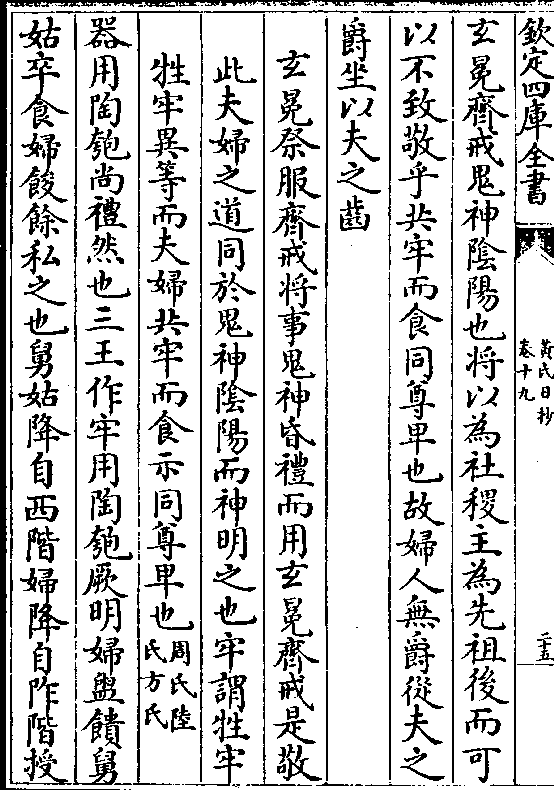 欽定四庫全書
黃氏日抄
卷十九
二十五
玄冕齊戒鬼神陰陽也將以為社稷主為先祖後而可
以不致敬乎共牢而食同尊卑也故婦人無爵從夫之
爵坐以夫之齒
玄冕祭服齊戒將事鬼神昏禮而用玄冕齊戒是敬
此夫婦之道同於鬼神陰陽而神明之也牢謂牲牢
牲牢異等而夫婦共牢而食示同尊卑也周氏陸氏方氏
器用陶匏尚禮然也三王作牢用陶匏厥明婦盥饋舅
姑卒食婦餕餘私之也舅姑降自西階婦降自阼階授